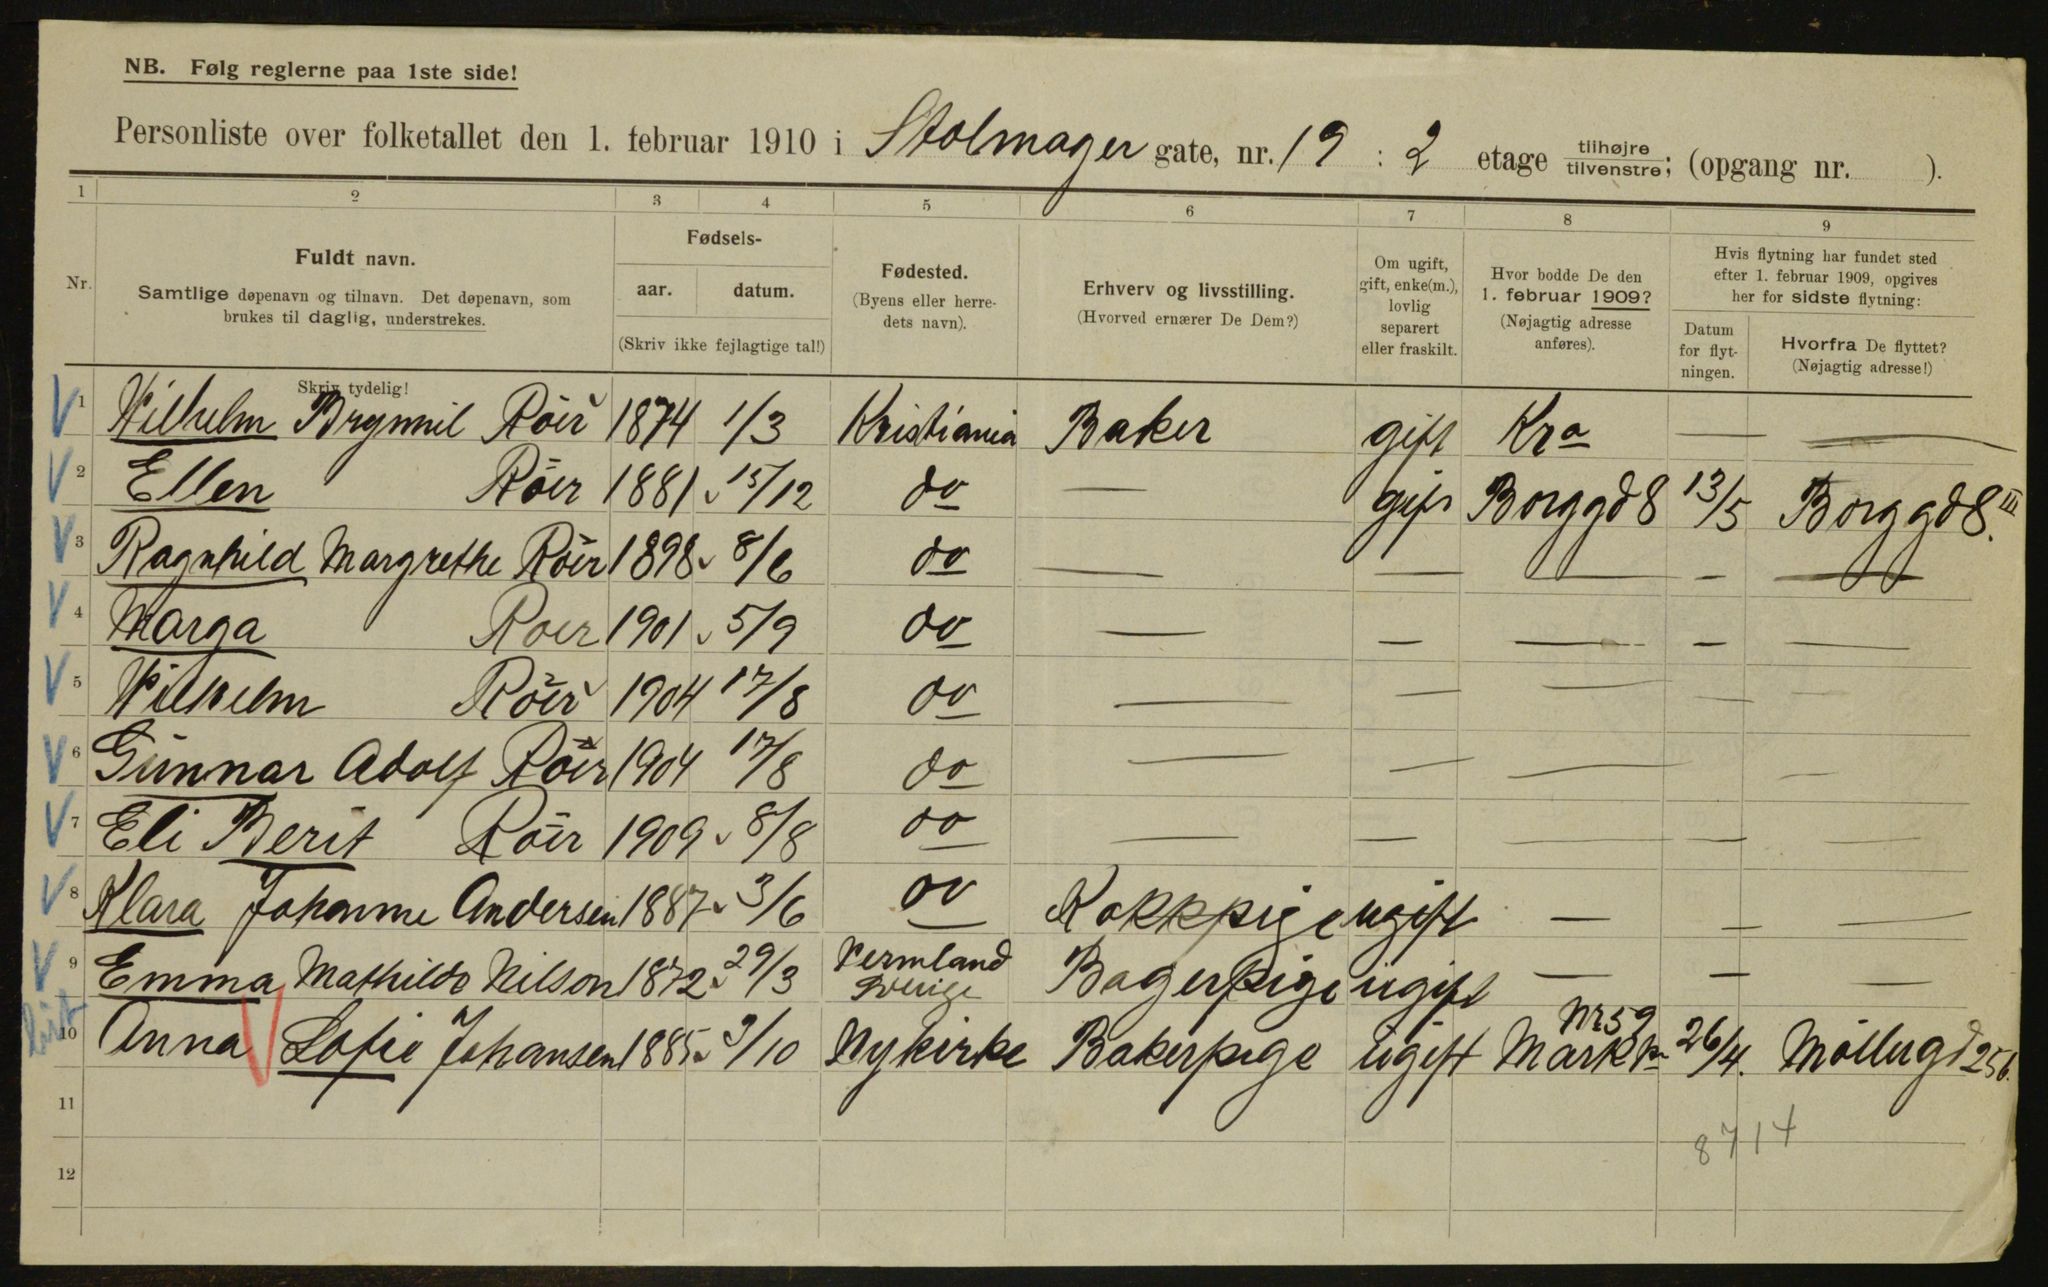 NB. Følg reglerne paa 1ste side!
Personliste over folketallet den 1. februar 1910 i Stolmager gate, nr. 19 : 2 etage tilhøjre/tilvenstre; (opgang nr. ).
1 2 3 4 5 6 7 8 9
Nr.
Fuldt navn.
Samtlige døpenavn og tilnavn. Det døpenavn, som
brukes til daglig, understrekes.
Skriv tydelig!
Fødsels-
aar. datum.
(Skriv ikke fejlagtige tal!)
Fødested.
(Byens eller herre-
dets navn).
Erhverv og livsstilling.
(Hvorved ernærer De Dem?)
Om ugift,
gift, enke(m.),
lovlig
separert
eller fraskilt.
Hvor bodde De den
1. februar 1909?
(Nøjagtig adresse
anføres).
Hvis flytning har fundet sted
efter 1. februar 1909, opgives
her for sidste flytning:
Datum
for flyt-
ningen.
Hvorfra De flyttet?
(Nøjagtig adresse!)
V 1 Wilhelm Brynnil Röer 1874 1/3 Kristiania Baker gift Kra — —
V 2 Ellen Röer 1881 15/12 do — gift Borggd 8 13/5 Borggd 8. III
V 3 Ragnhild Margrethe Röer 1898 8/6 do — — — — —
V 4 Marga Roer 1901 5/9 do — — — — —
V 5 Wilhelm Röer 1904 17/8 do — — — — —
V 6 Gunnar Adolf Röer 1904 17/8 do — — — — —
V 7 Eli Berit Röer 1909 8/8 do — — — — —
V 8 Klara Johanne Andersen 1887 3/6 do Kokkpige ugift — — —
V 9 Emma Mathilde Nilson 1872 29/3 Vermland Sverige Bagerpige ugift — — —
10 Anna V Sofie Johansen 1885 2/10 Nykirke Bakerpige ugift Markvn Nr 59 26/4. Möllergd 25b.
11
8714
12